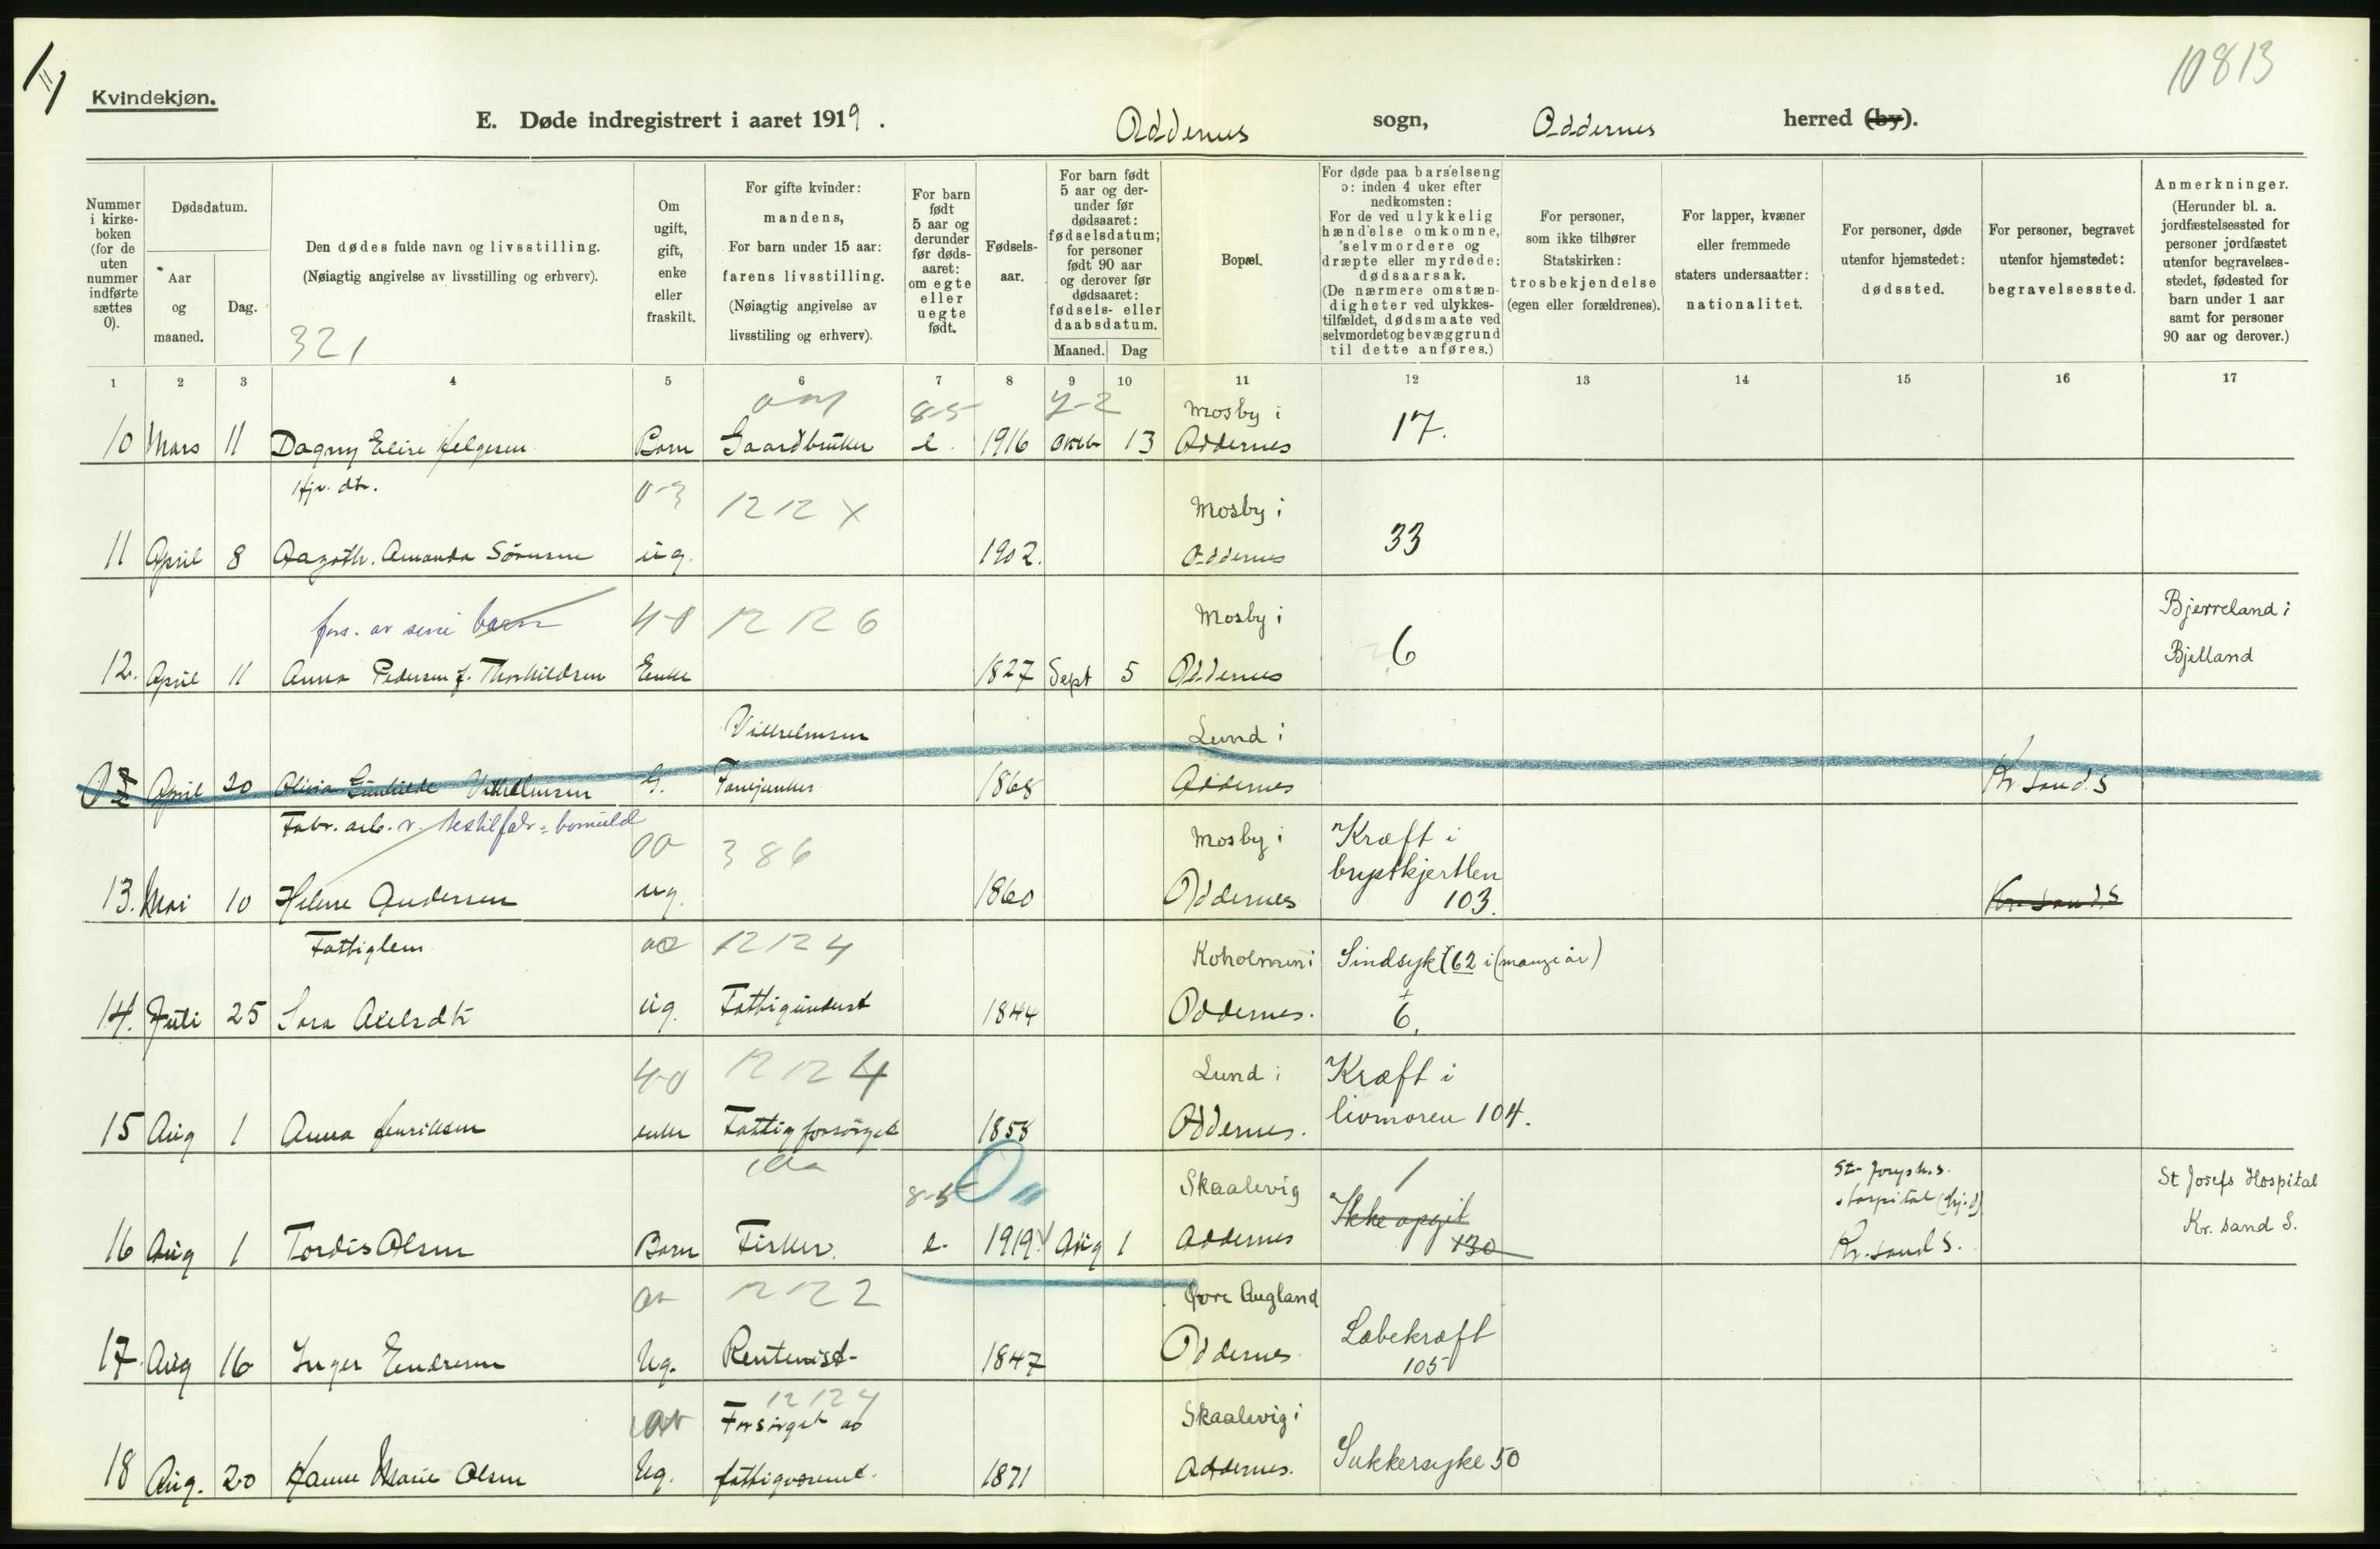 10813
Kvindekjøn.
E. Døde indregistrert i aaret 1919. Oddernes sogn, Oddernes herred (by).
Nummer i kirkeboken (for de uten nummer indførte sættes 0).
Dødsdatum.
Aar og maaned.
Dag.
Den dødes fulde navn og livsstilling.
(Nøiagtig angivelse av livsstilling og erhverv).
321
Om ugift, gift, enke eller fraskilt.
For gifte kvinder: mandens,
For barn under 15 aar: farens livsstilling.
(Nøiagtig angivelse av livsstiling og erhverv).
For barn født 5 aar og derunder før dødsaaret: om egte eller uegte født.
Fødselsaar.
For barn født 5 aar og derunder før dødsaaret: fødselsdatum; for personer født 90 aar og derover før dødsaaret: fødsels- eller daabsdatum.
Maaned. Dag
Bopæl.
For døde paa barselseng ɔ: inden 4 uker efter nedkomsten:
For de ved ulykkelig hændelse omkomne, selvmordere og dræpte eller myrdede: dødsaarsak.
(De nærmere omstændigheter ved ulykkestilfældet, dødsmaate ved selvmordet og bevæggrund til dette anføres.)
For personer, som ikke tilhører Statskirken: trosbekjendelse (egen eller forældrenes).
For lapper, kvæner eller fremmede staters undersaatter: nationalitet.
For personer, døde utenfor hjemstedet: dødssted.
For personer, begravet utenfor hjemstedet: begravelsessted.
Anmerkninger.
(Herunder bl. a. jordfæstelsessted for personer jordfæstet utenfor begravelsesstedet, fødested for barn under 1 aar samt for personer 90 aar og derover.)
1 2 3 4 5 6 7 8 9 10 11 12 13 14 15 16 17
8-5 Mosby i
10 Mars 11 Dagny Elise Helgesen Barn Gaardbruker e. 1916 Oktb 13 Oddernes 17.
Hjv. dtr. 1212 X Mosby i
11 April 8 Amanda Sörensen ug. 1902. Oddernes 33
fors. av sine barn 40 12126 Mosby i Bjerreland i
12. April 11 Anna Pedersen f. Thorkildsen Enke 1827 Sept 5 Oddernes 6 Bjelland
Vilhelmsen Lund i
April 20 Olivia Gunhilde Vilhelmsen G. Fanejunker 1868 Oddernes Kr.sand.S
Fabr. arb. v. tekstilfabr = bomuld 386 Mosby i Kræft i brystkjertlen
13. Mai 10 Helene Andersen ug. 1860 Oddernes 103. Kr.sand.S
Fattiglem 12124 Koholmen i Sindsyk 62 i (mange år)
14. Juli 25 Sara Axelsdtr ug. Fattigunderst 1844 Oddernes. 6.
40 12124 Lund i Kræft i
15 Aug 1 Anna Henriksen enke Fattigforsörget 1858 Oddernes. livmoren 104.
8-5 Skaalevig 1 St. Josephs. Hospital St Josefs Hospital
16 Aug 1 Tordis Olsen Barn Fisker e. 1919 Aug 1 Oddernes Ikke opgit 130 Kr.sand S. Kr. sand S.
1212 2 Övre Augland Læbekræft
17. Aug 16 Inger Endresen Ug. Rentenist- 1847 Oddernes 105
12124 Forsörget av Skaalevig i
18 Aug. 20 Hanne Marie Olsen Ug. fattigvæsenet. 1871 Oddernes. Sukkersyke 50